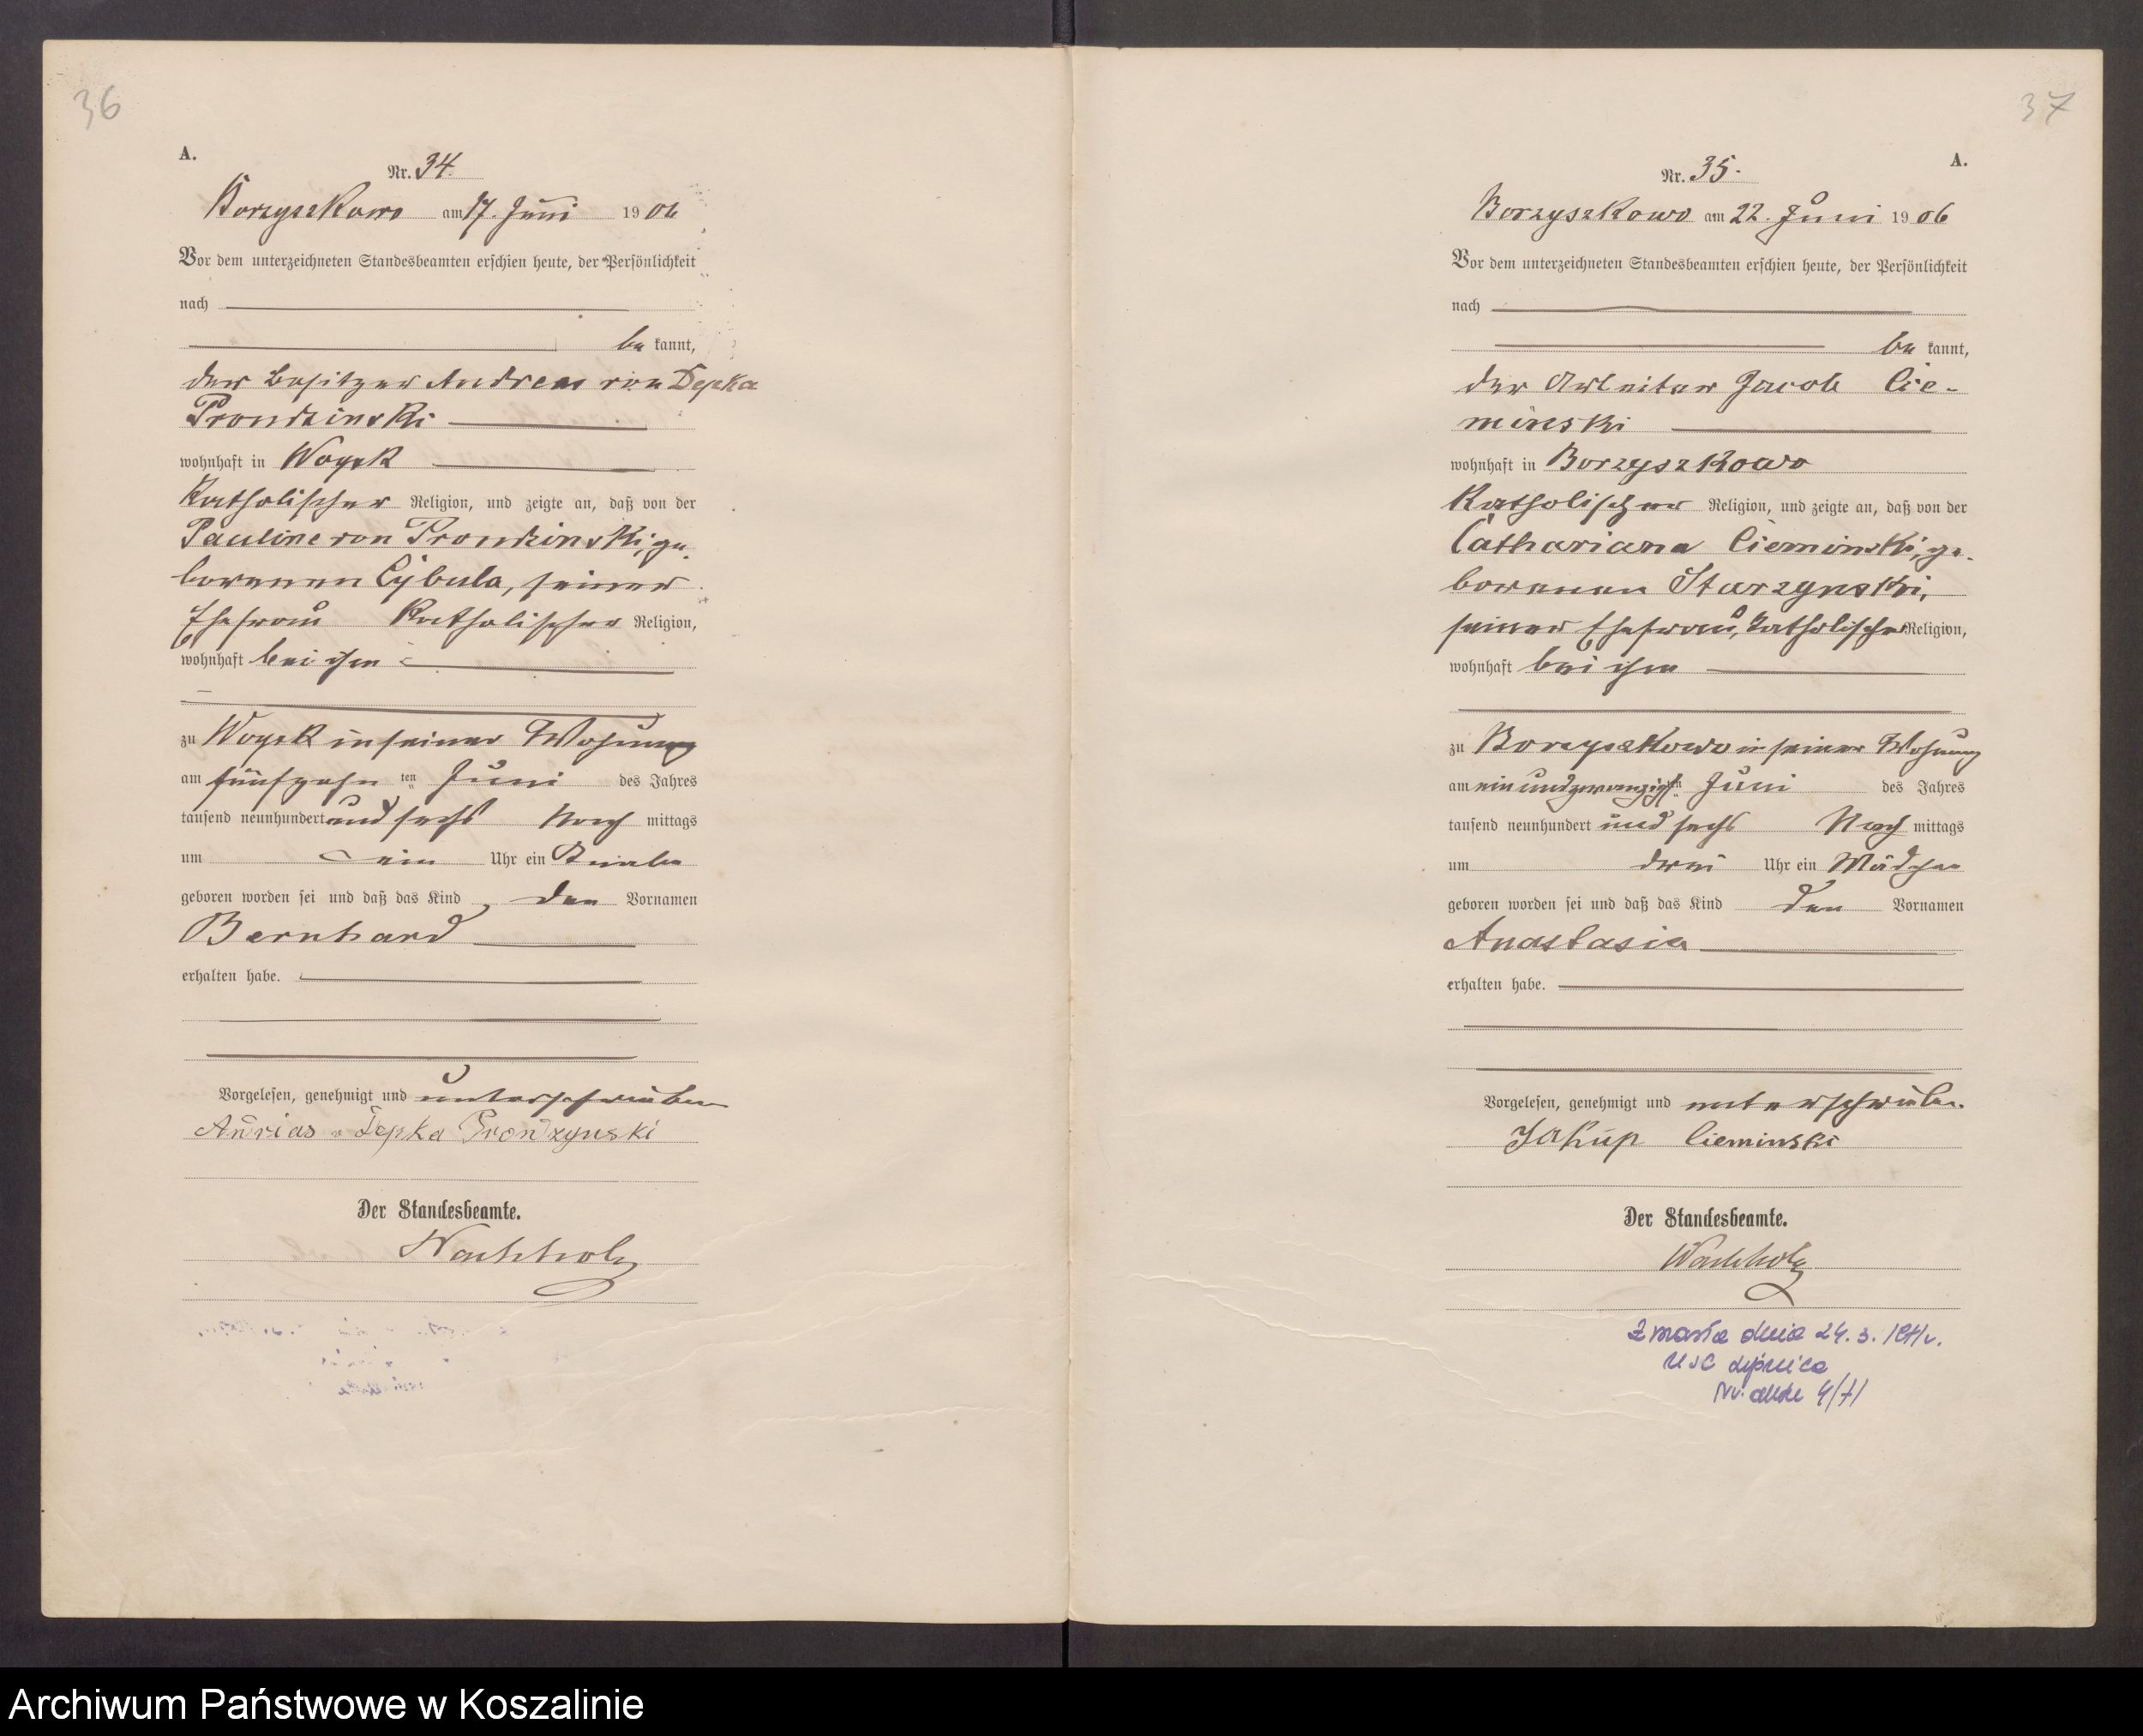 36
A.
Nr. 34.
Borzyszkowo am 17. Juni 1906
Vor dem unterzeichneten Standesbeamten erschien heute, der Persönlichkeit
nach
be kannt,
der Besitzer Andreas von Depka
Prondzinski
wohnhaft in Woysk
katholischer Religion, und zeigte an, daß von der
Pauline von Prondzinski, ge-
borenen Cybula, seiner
Ehefrau katholischer Religion,
wohnhaft bei ihm
zu Woysk in seiner Wohnung
am fünfzehn ten Juni des Jahres
tausend neunhundert und sechs Nach mittags
um ein Uhr ein Knabe
geboren worden sei und daß das Kind den Vornamen
Bernhard
erhalten habe.
Vorgelesen, genehmigt und unterschrieben
Andrias v Depka Prondzynski
Der Standesbeamte.
Wachholz
37
A.
Nr. 35.
Borzyszkowo am 22. Juni 1906
Vor dem unterzeichneten Standesbeamten erschien heute, der Persönlichkeit
nach
be kannt,
der Arbeiter Jacob Cie-
minski
wohnhaft in Borzyszkowo
katholischer Religion, und zeigte an, daß von der
Cathariana Cieminski, ge-
borenen Starzynski,
seiner Ehefrau, katholischer Religion,
wohnhaft bei ihm
zu Borzyszkowo in seiner Wohnung
am ein und zwanzigsten Juni des Jahres
tausend neunhundert und sechs Nach mittags
um drei Uhr ein Mädchen
geboren worden sei und daß das Kind den Vornamen
Anastasia
erhalten habe.
Vorgelesen, genehmigt und unterschrieben.
Jakup Cieminski
Der Standesbeamte.
Wachholz
Zmarła dnia 24. 3. 1971 r.
USC Lipnica
Nr. aktu 4/71
Archiwum Państwowe w Koszalinie